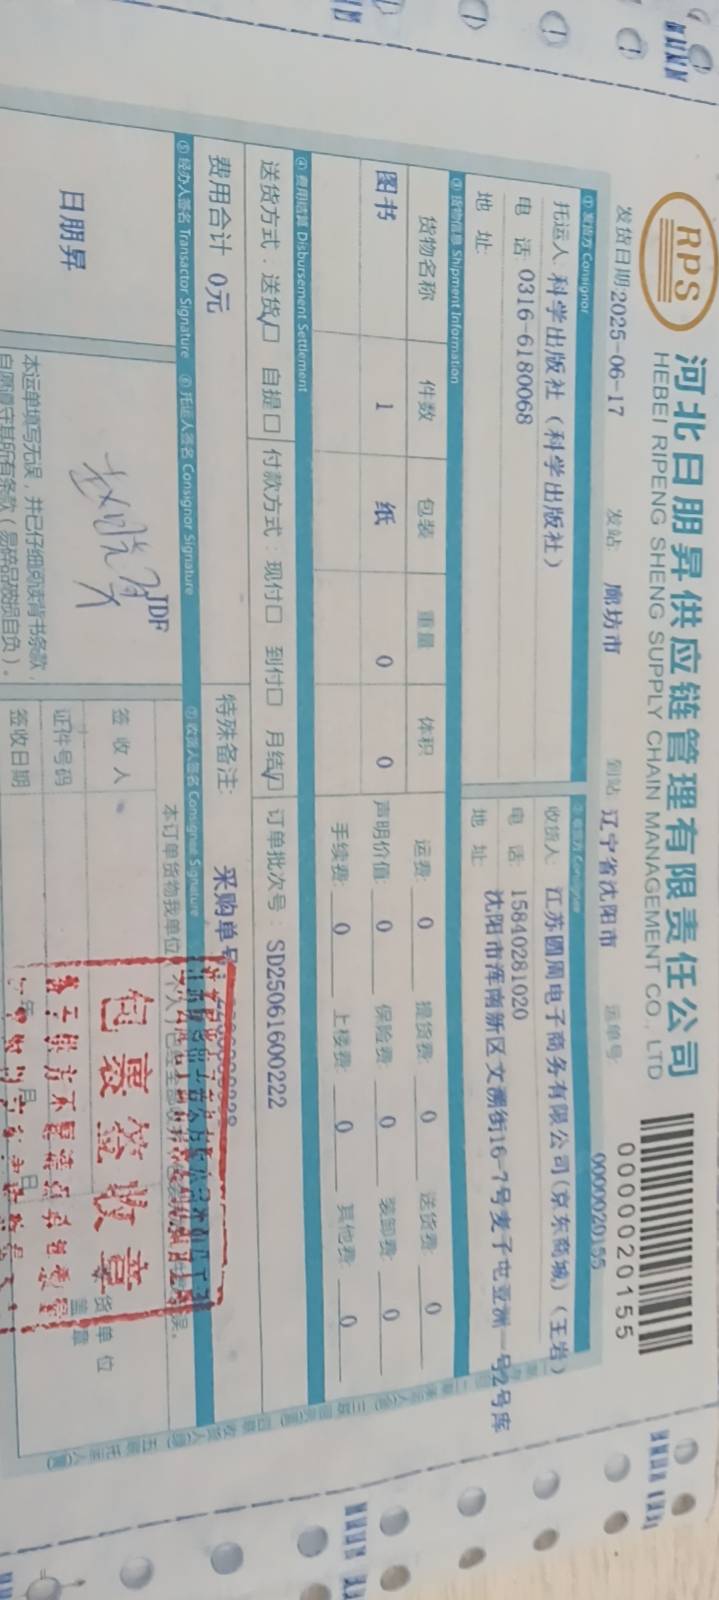 RPS
河北日朋昇供应链管理有限责任公司
HEBEI RIPENG SHENG SUPPLY CHAIN MANAGEMENT CO., LTD
0000020155
发货日期:2025-06-17 发站: 廊坊市 到站: 辽宁省沈阳市 运单号: 0000020155
① 发货方 Consignor ② 收货方 Consignee
托运人: 科学出版社（科学出版社） 收货人: 江苏圆周电子商务有限公司(京东商城)（王岩）
电 话: 0316-6180068 电 话: 15840281020
地 址: 地 址: 沈阳市浑南新区文溯街16-7号麦子屯亚洲一号2号库
③ 货物信息 Shipment Information
货物名称 件数 包装 重量 体积 运费: 0 提货费: 0 送货费: 0
图书 1 纸 0 0 声明价值: 0 保险费: 0 装卸费: 0
手续费: 0 上楼费: 0 其他费: 0
④ 费用结算 Disbursement Settlement
送货方式：送货☑ 自提□ 付款方式：现付□ 到付□ 月结☑ 订单批次号：SD25061600222
费用合计 0元 特殊备注: 采购单号
⑤ 经办人签名 Transactor Signature ⑥ 托运人签名 Consignor Signature ⑦ 收货人签名 Consignee Signature
日朋昇
JDF
本订单货物我单位
签 收 人
证件号码
签收日期 年 月 日
货单位
盖章
包裹签收章
本运单填写无误，并已仔细阅读背书条款，
自愿遵守其所有条款（易碎品破损自负）。